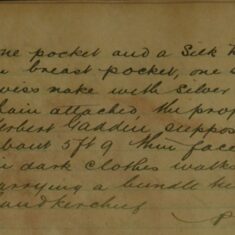 one pocket and a Silk
breast pocket, one
make with Silver
chain attached, the prop
Herbert Gaddin suppos
about 5ft 9 thin face
in dark clothes walks
carrying a bundle
handkerchief